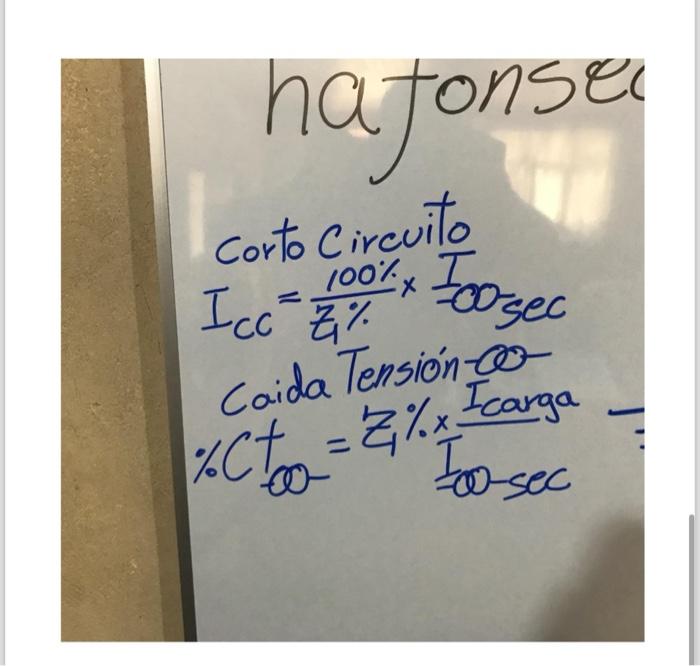 hafonsec
Corto Circuito
Icc = 100% / Z% x I-OO-sec
Caida Tensión -OO-
%Ct-OO- = Z% x Icarga / I-OO-sec